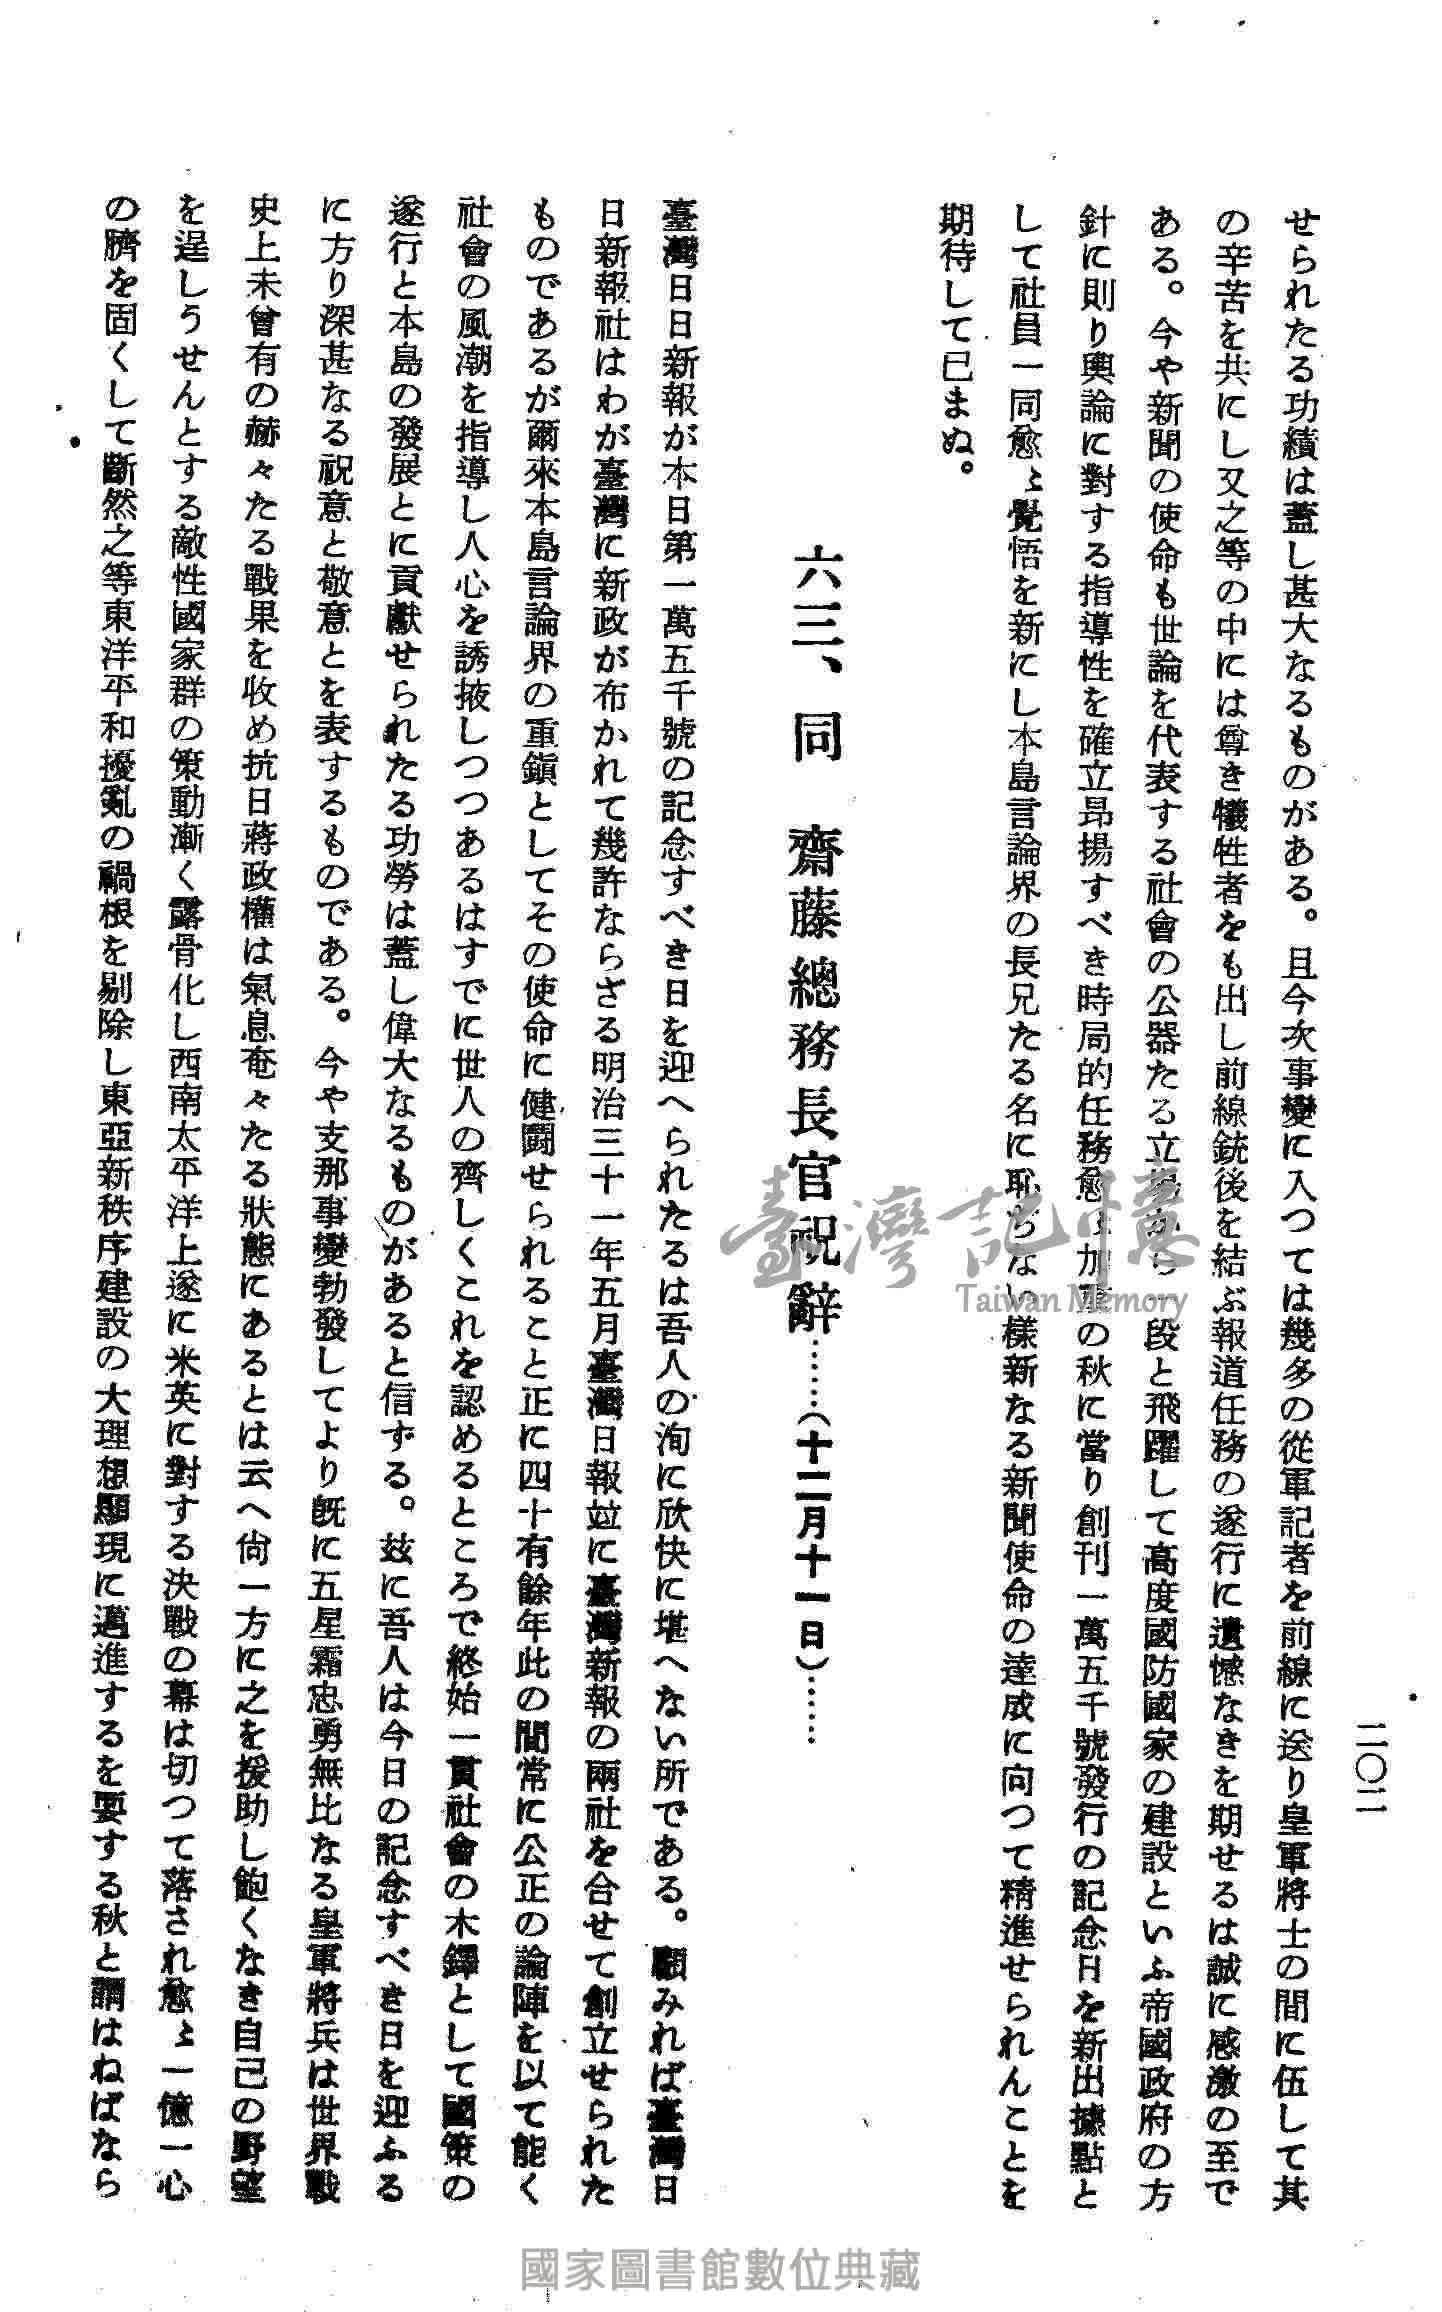 二〇二
せられたる功績は蓋し甚大なるものがある。且今次事變に入つては幾多の從軍記者を前線に送り皇軍將士の間に伍して其
の辛苦を共にし又之等の中には尊き犧牲者をも出し前線銃後を結ぶ報道任務の遂行に遺憾なきを期せるは誠に感激の至で
ある。今や新聞の使命も世論を代表する社會の公器たる立場から一段と飛躍して高度國防國家の建設といふ帝國政府の方
針に則り輿論に對する指導性を確立昂揚すべき時局的任務愈〻加重の秋に當り創刊一萬五千號發行の記念日を新出據點と
して社員一同愈〻覺悟を新にし本島言論界の長兄たる名に恥ぢない樣新なる新聞使命の達成に向つて精進せられんことを
期待して已まぬ。
六三、同 齋藤總務長官祝辭……(十二月十一日)……
臺灣日日新報が本日第一萬五千號の記念すべき日を迎へられたるは吾人の洵に欣快に堪へない所である。顧みれば臺灣日
日新報社はわが臺灣に新政が布かれて幾許ならざる明治三十一年五月臺灣日報竝に臺灣新報の兩社を合せて創立せられた
ものであるが爾來本島言論界の重鎭としてその使命に健鬪せられること正に四十有餘年此の間常に公正の論陣を以て能く
社會の風潮を指導し人心を誘掖しつつあるはすでに世人の齊しくこれを認めるところで終始一貫社會の木鐸として國策の
遂行と本島の發展とに貢獻せられたる功勞は蓋し偉大なるものがあると信ずる。玆に吾人は今日の記念すべき日を迎ふる
に方り深甚なる祝意と敬意とを表するものである。今や支那事變勃發してより旣に五星霜忠勇無比なる皇軍將兵は世界戰
史上未曾有の赫々たる戰果を收め抗日蔣政權は氣息奄々たる狀態にあるとは云へ尙一方に之を援助し飽くなき自己の野望
を逞しうせんとする敵性國家群の策動漸く露骨化し西南太平洋上遂に米英に對する決戰の幕は切つて落され愈〻一億一心
の臍を固くして斷然之等東洋平和擾亂の禍根を剔除し東亞新秩序建設の大理想顯現に邁進するを要する秋と謂はねばなら
臺灣記憶
Taiwan Memory
國家圖書館數位典藏